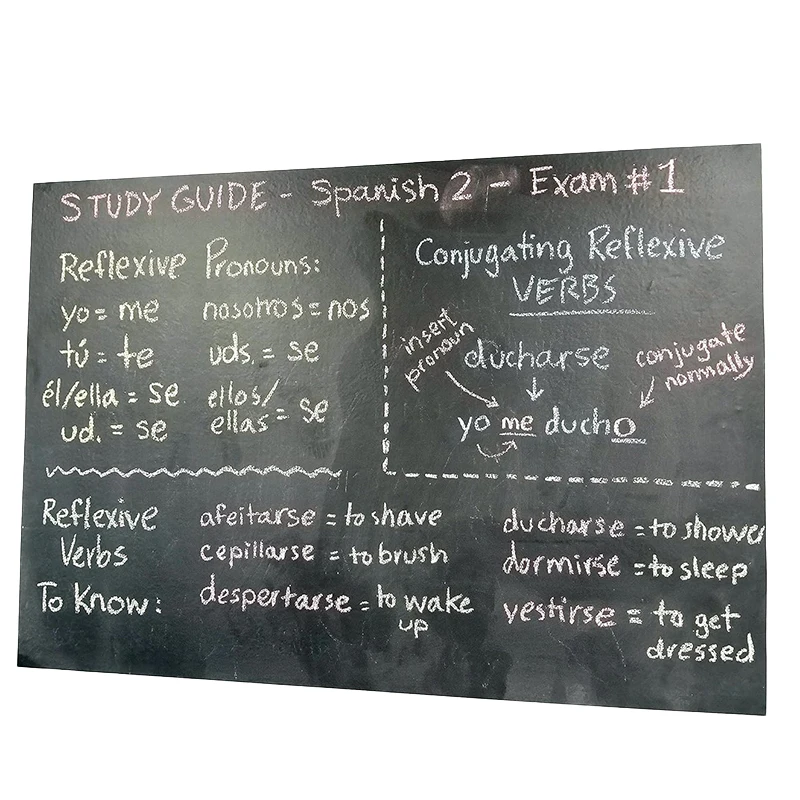 STUDY GUIDE - Spanish 2 - Exam #1
Reflexive Pronouns:
yo = me
tú = te
él/ella = se
ud. = se
nosotros = nos
uds. = se
ellos/
ellas = se
Conjugating Reflexive
VERBS
insert
pronoun
ducharse
conjugate
normally
yo me ducho
Reflexive
Verbs
To Know:
afeitarse = to shave
cepillarse = to brush
despertarse = to wake
up
ducharse = to shower
dormirse = to sleep
vestirse = to get
dressed